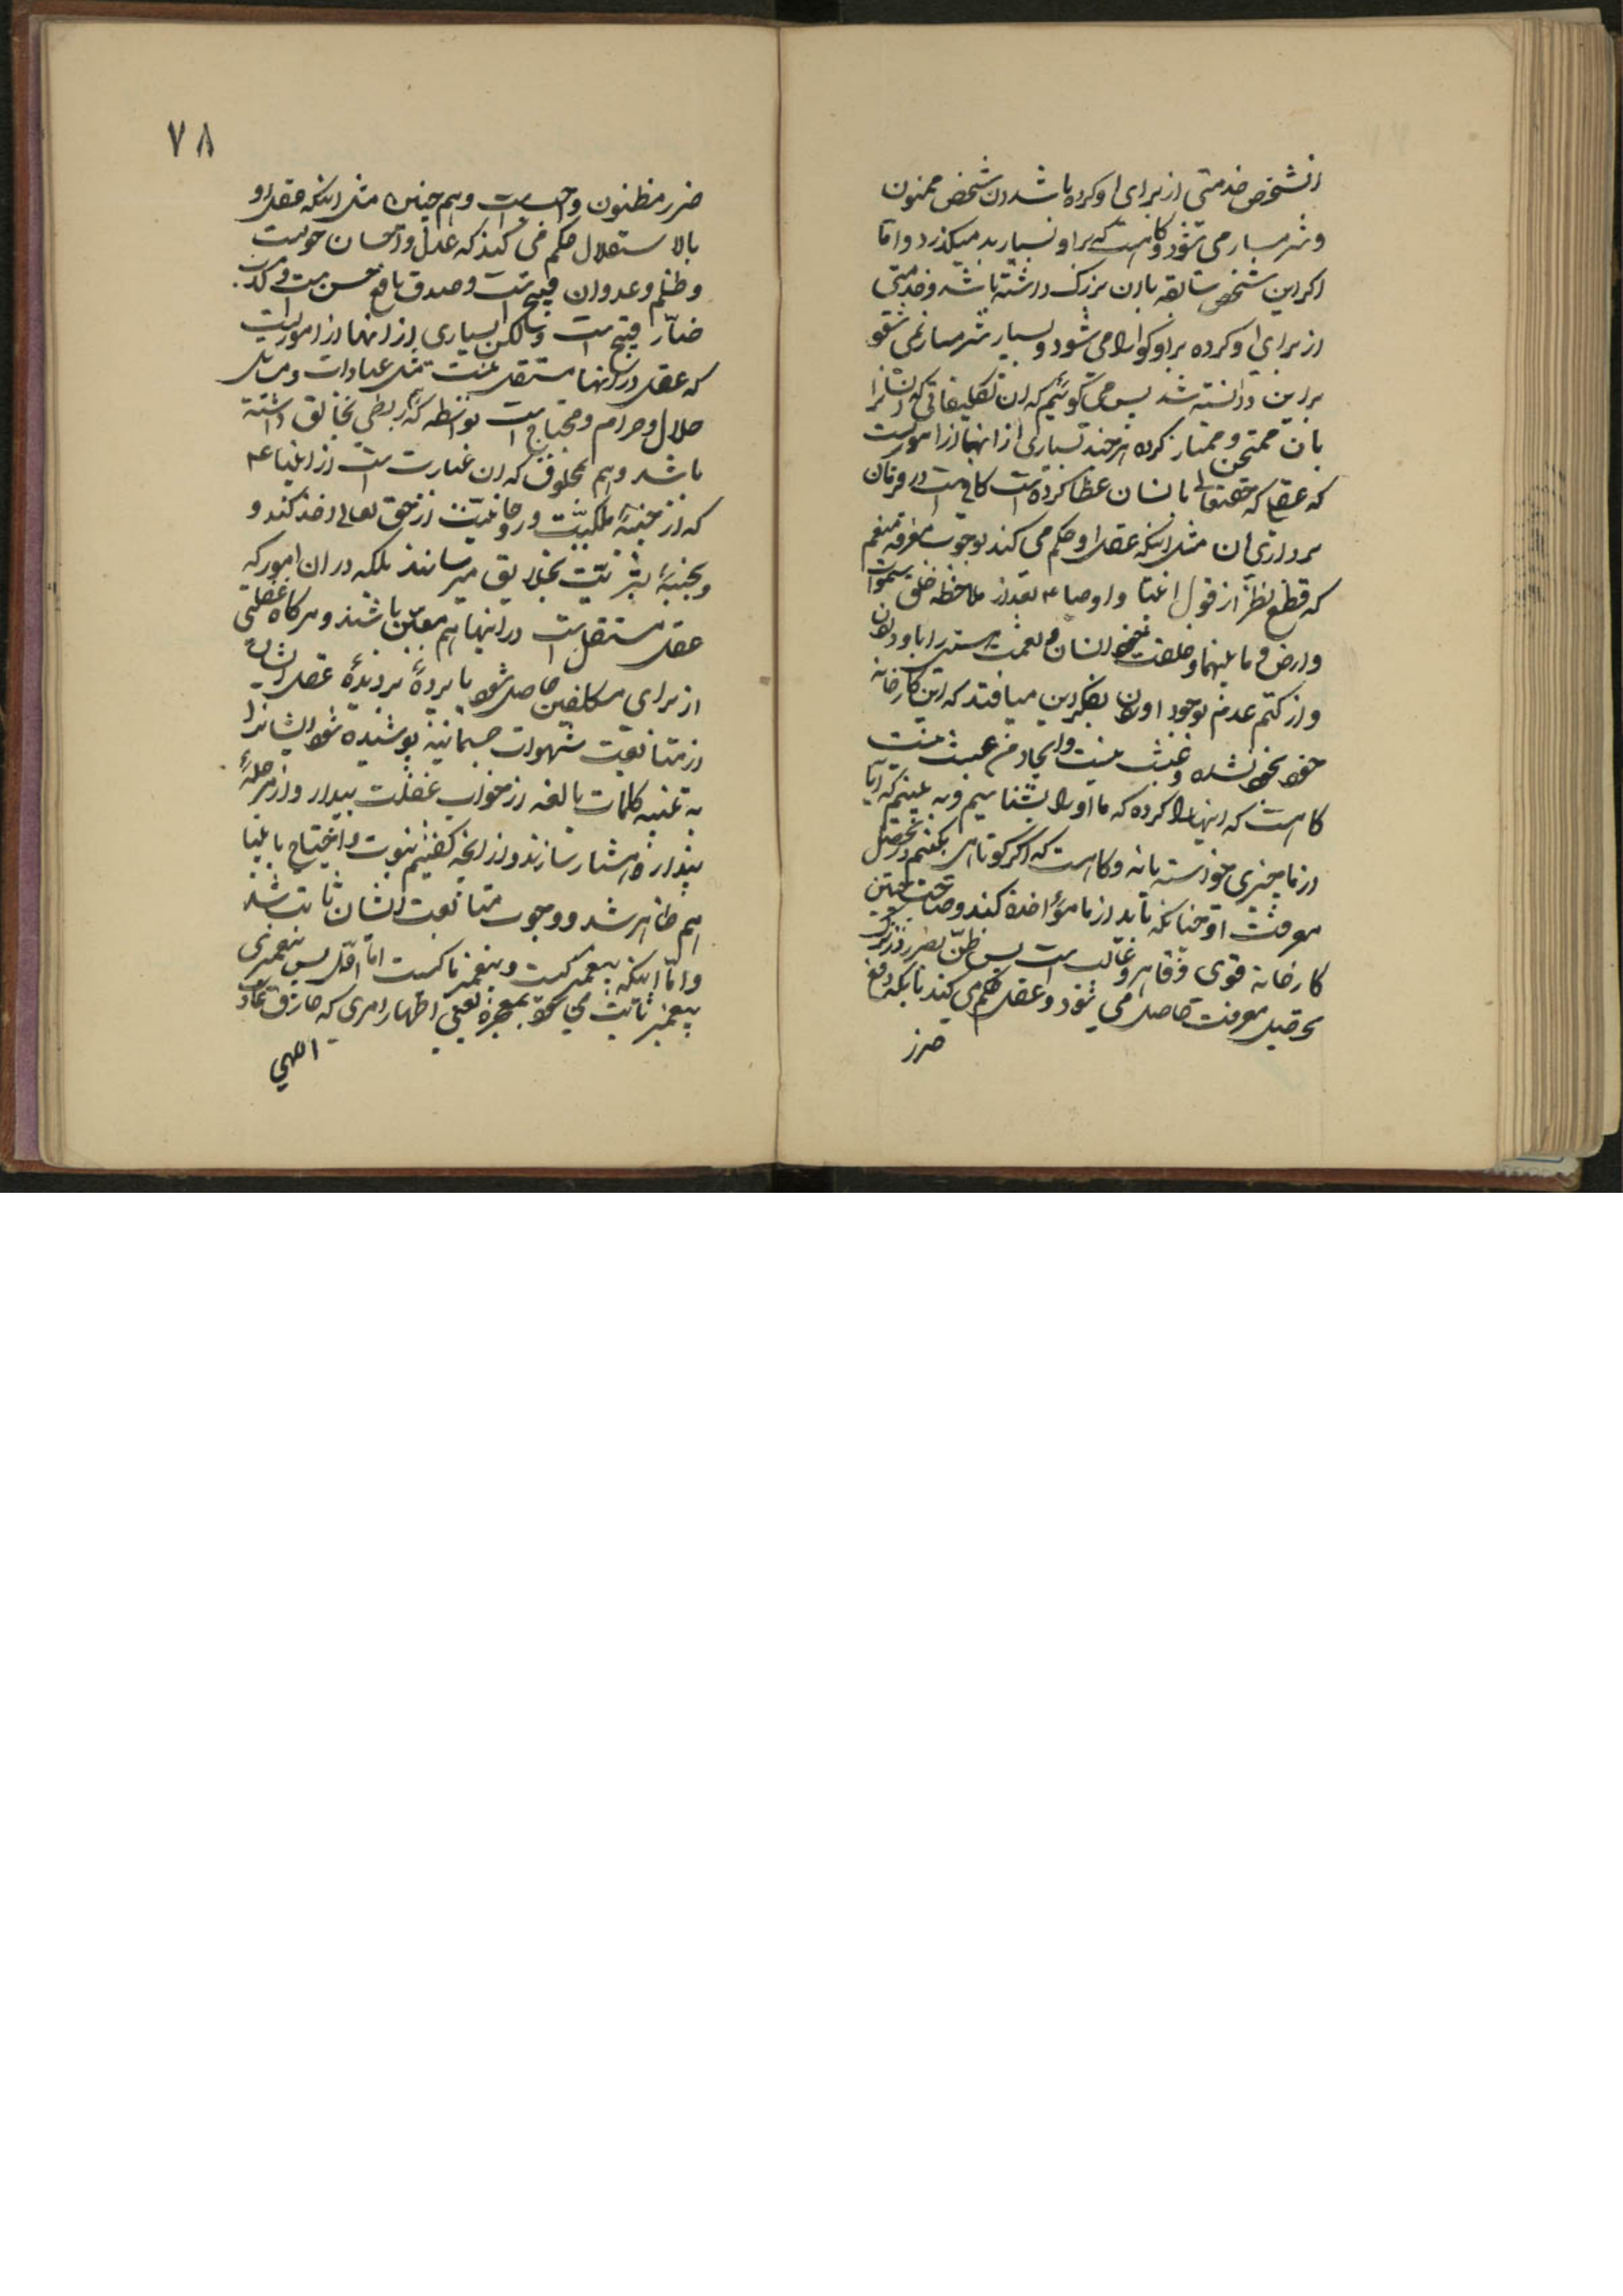 انشخص خدمتی از برای او کرده باشد ان شخص ممنون
و شرمسار می شود و کاهست که بر او بسیار بد میکذرد و اما
اکر این شخص سابقه با ان بزرک داشته باشد و خدمتی
از برای او کرده بر او کوارا می شود و بسیار شرمسار نمی شود
براین دانسته شد پس می کوئیم که ان تکلیفاتی که انسانرا
بان ممتحن و ممتاز کرده هر چند بسیاری از انها از اموریست
که عقلی که حقتعالی بانسان عطا کرده است کافیست در فرمان
برداری ان مثل اینکه عقل او حکم می کند بوجوب معرفة منعم
که قطع نظر از قول انبیا و اوصیا ع بعد از ملاحظه خلق سموات
و ارض و ما بینهما و خلقت خود انسان و نعمت هستی را باو دادن
و از کتم عدم بوجود اوردن بفکر این میافتد که این کارخانه
خود بخود نشده و عبث نیست و ایجاد من عبث نیست
کاهست که اینها را کرده که ما او را بشناسیم و به بینیم که ایا
از ما چیزی خواسته یا نه و کاهست که اکر کوتاهی بکنیم در تحصیل
معرفت او چنانکه باید از ما مؤاخذه کند و صاحب چنین
کارخانه قوی و قاهر و غالب است پس ظن بضرر در ترک
تحصیل معرفت حاصل می شود و عقل حکم می کند بانکه دفع
ضرر
۷۸
ضرر مظنون واجبست و هم چنین مثل اینکه عقل او
بالاستقلال حکم می کند که عدل و احسان خوبست
و ظلم و عدوان قبیح است و صدق نافع حسن است و کذب
ضار قبیح است و لکن بسیاری از انها از اموریست
که عقل در انها مستقل نیست مثل عبادات و مسائل
حلال و حرام و محتاج است بواسطه که هم ربطی بخالق داشته
باشد و هم بمخلوق که ان عبارت است از انبیا ع
که از جنبهٔ ملکیت و روحانیت از حق تعالی اخذ کند و
و بجنبهٔ بشریت بخلایق میرسانند بلکه در ان امور که
عقل مستقل است در اینها هم معین باشند و هرکاه غفلتی
از برای مکلفین حاصل شود یا پردهٔ بر دیدهٔ عقل ایشان
از متابعت شهوات جسمانیه پوشیده شود ایشانرا
به تنبیه کلمات بالغه از خواب غفلت بیدار و از مرحلهٔ
پندار هشیار سازند و از انچه کفتیم نبوت و احتیاج بانبیا
هم ظاهر شد و وجوب متابعت ایشان ثابت شد
و اما اینکه پیغمبر کیست و پیغمبر ما کیست اما اول پس پیغمبری
پیغمبر ثابت می شود بمعجزه یعنی اظهار امری که خارق عادت
الهی